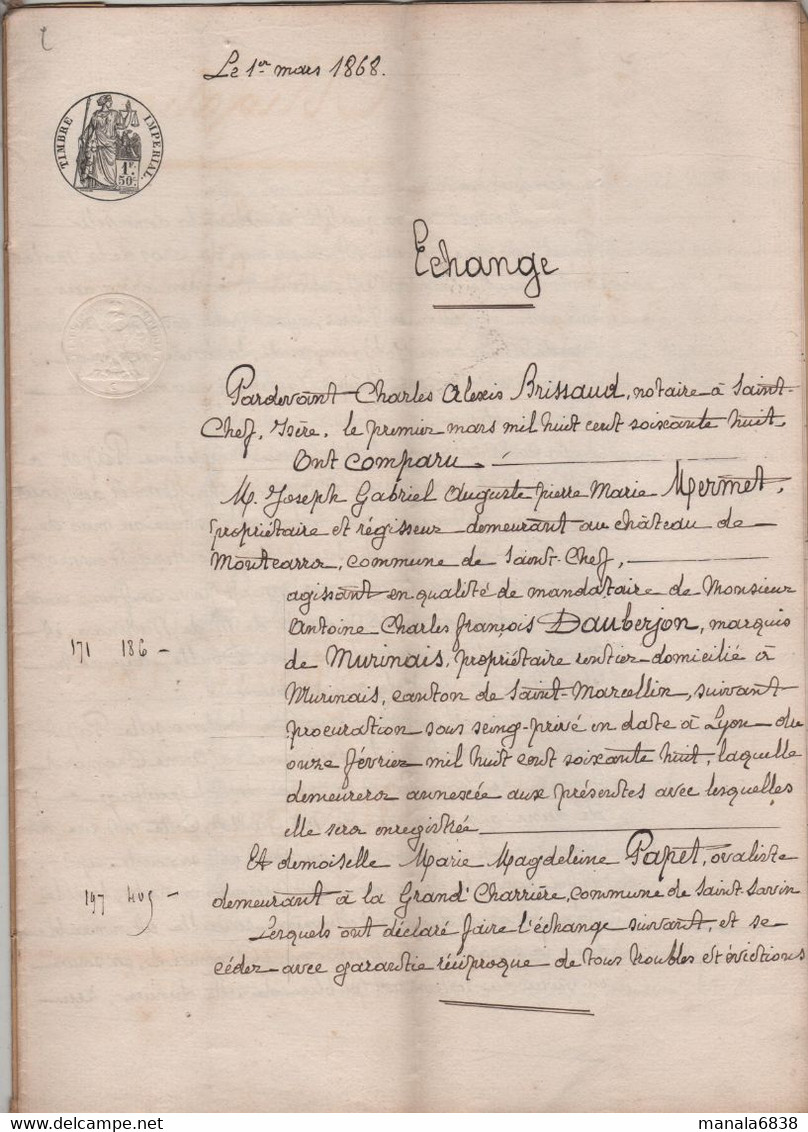 Le 1er mars 1868.
TIMBRE IMPERIAL.
1F.
50c.
Echange
Pardevant Charles Alexis Brissaud, notaire à Saint-
Chef, Isère, le premier mars mil huit cent soixante huit,
Ont comparu.
M. Joseph Gabriel Auguste Pierre Marie Mermet,
propriétaire et régisseur demeurant au château de
Montcarra, commune de Saint-Chef,
agissant en qualité de mandataire de Monsieur
Antoine Charles François Dauberjon, marquis
171 186 -
de Murinais, propriétaire rentier domicilié à
Murinais, canton de Saint-Marcellin, suivant
procuration sous seing-privé en date à Lyon du
onze février mil huit cent soixante huit, laquelle
demeurera annexée aux présentes avec lesquelles
elle sera enregistrée
Et demoiselle Marie Magdeleine Papet, ovaliste
197 405 -
demeurant à la Grand'Charrière, commune de Saint-Savin
Lesquels ont déclaré faire l'échange suivant, et se
céder avec garantie réciproque de tous troubles et évictions
www.delcampe.net
manala6838